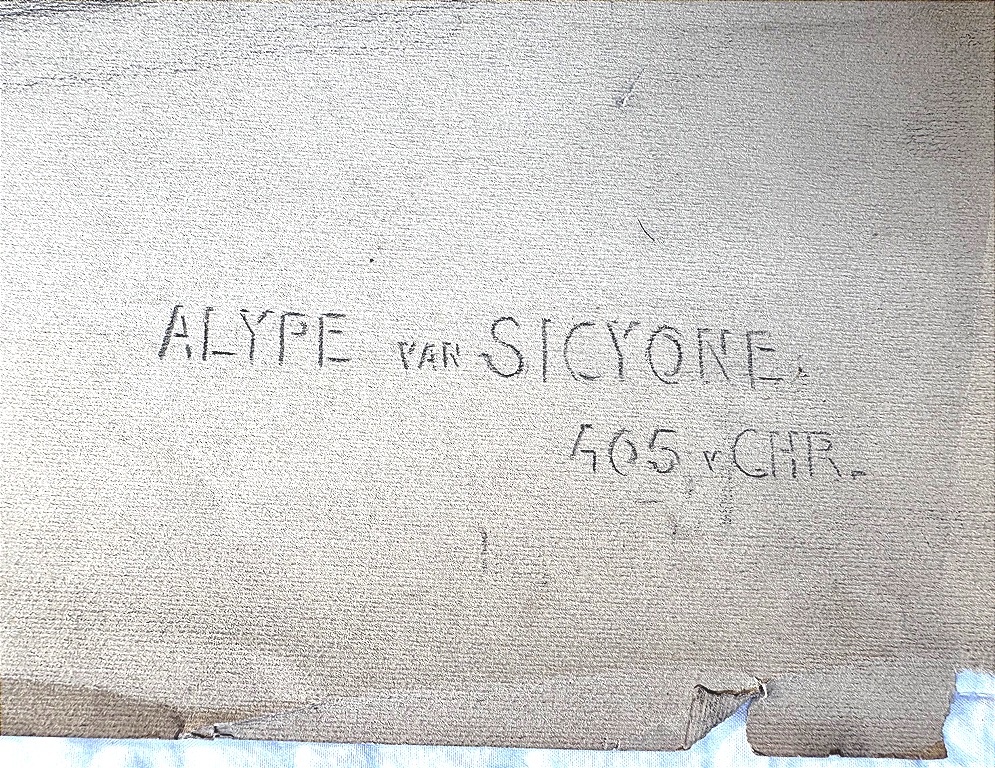 ALYPE VAN SICYONE.
405 v CHR.